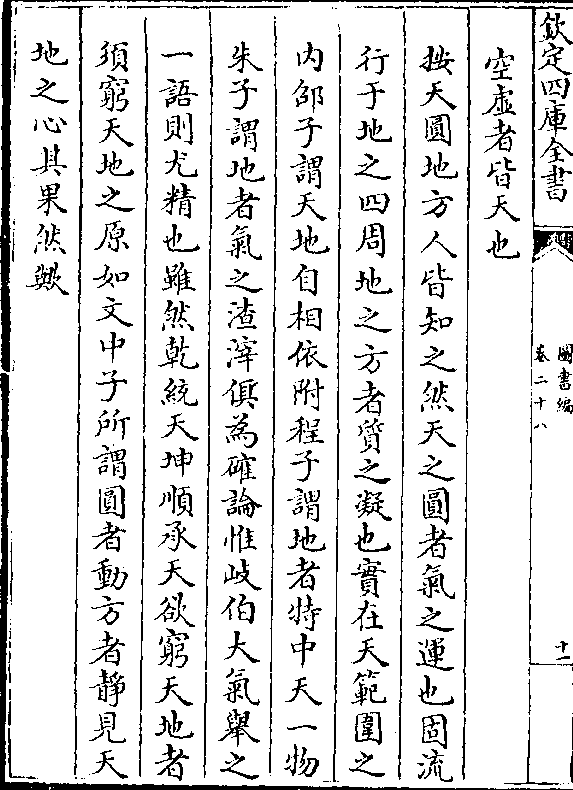 欽定四庫全書
圖書編
卷二十八
十一
空虛者皆天也
按天圓地方人皆知之然天之圓者氣之運也固流
行于地之四周地之方者質之凝也實在天範圍之
内邵子謂天地自相依附程子謂地者特中天一物
朱子謂地者氣之渣滓俱為確論惟岐伯大氣舉之
一語則尤精也雖然乾統天坤順承天欲窮天地者
須窮天地之原如文中子所謂圓者動方者靜見天
地之心其果然歟